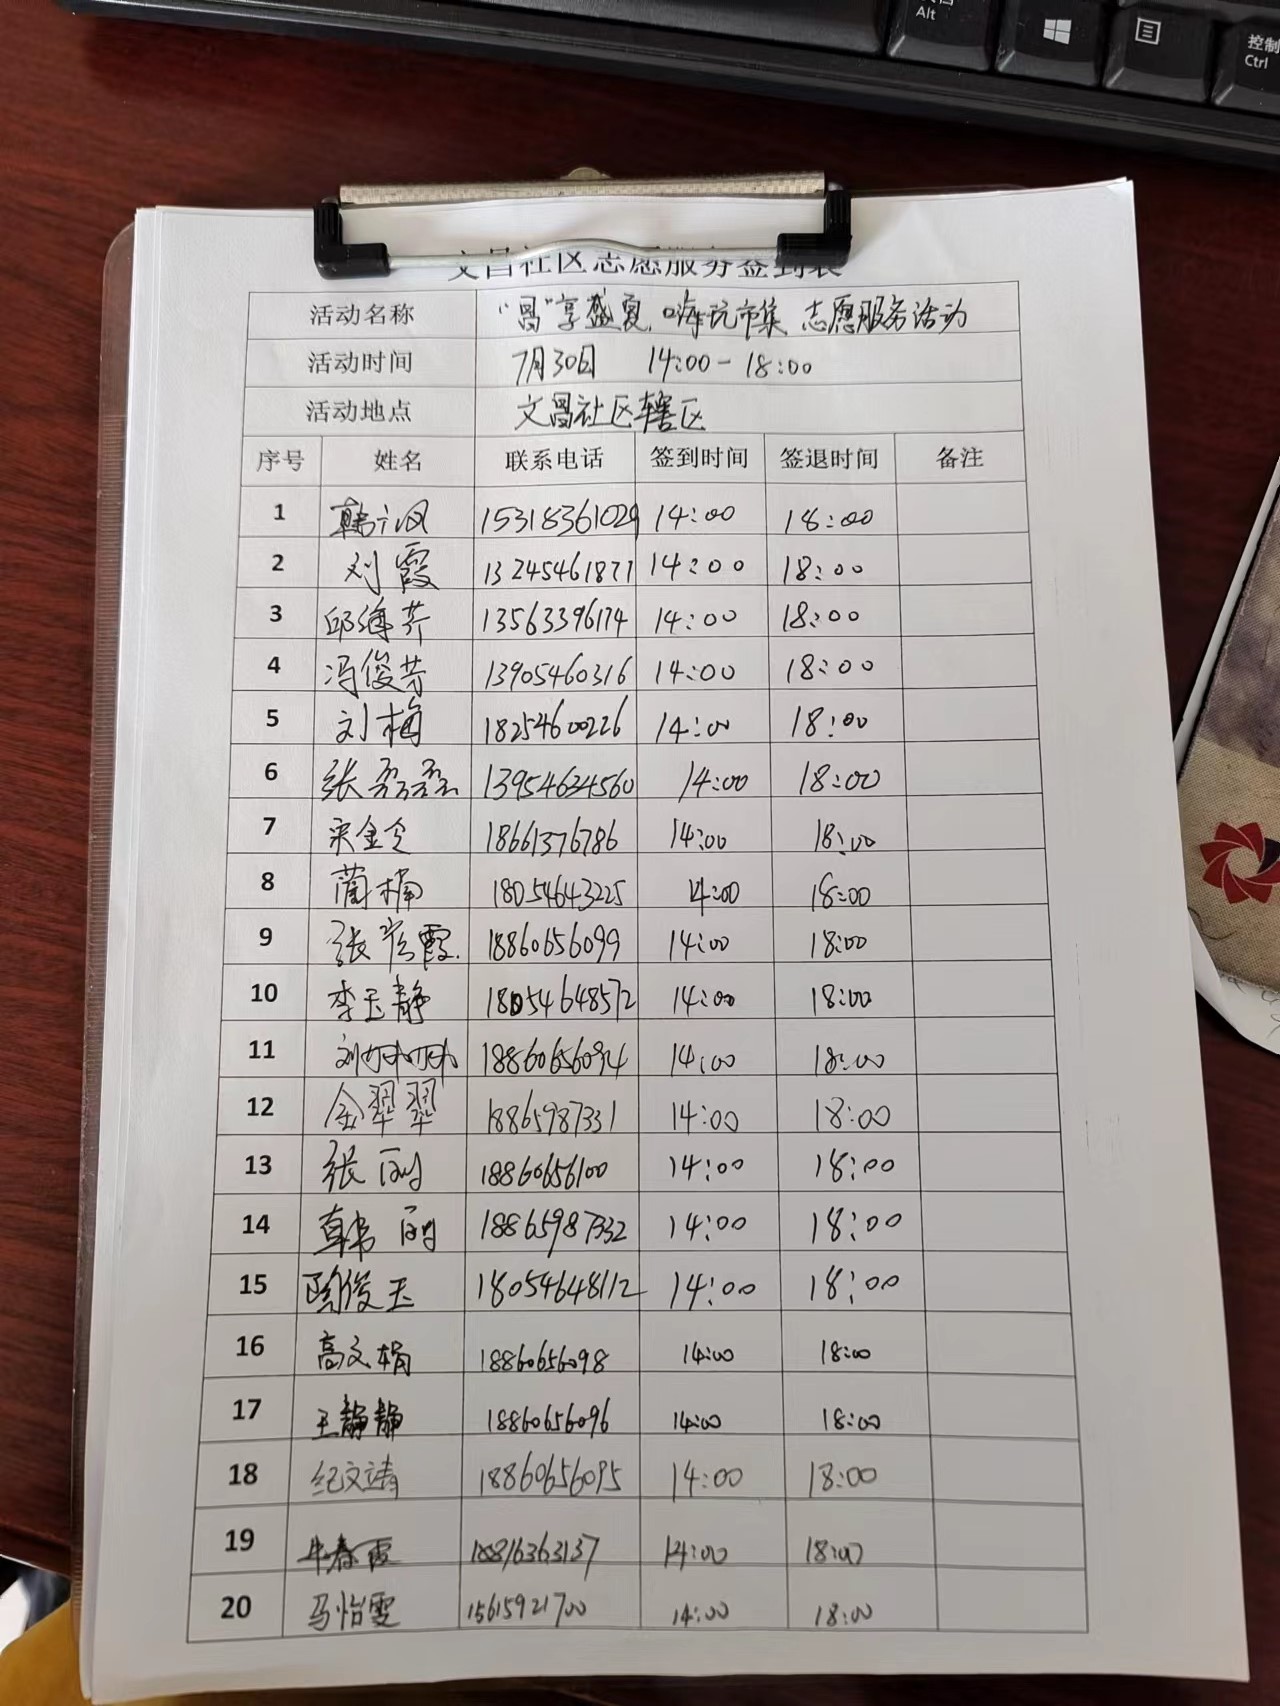 Alt
控制
Ctrl
文昌社区志愿服务签到表
活动名称 "昌"享盛夏、嗨玩市集 志愿服务活动
活动时间 7月30日 14:00-18:00
活动地点 文昌社区辖区
序号 姓名 联系电话 签到时间 签退时间 备注
1 15318361029 14:00 18:00
2 刘霞 13245461871 14:00 18:00
3 邱海芹 13563396174 14:00 18:00
4 冯俊芳 13905460316 14:00 18:00
5 刘梅 18254600226 14:00 18:00
6 张磊磊 13954634560 14:00 18:00
7 宋金令 18661376786 14:00 18:00
8 蔺楠 18054643225 14:00 18:00
9 张彦霞 18860656099 14:00 18:00
10 李玉静 18054648572 14:00 18:00
11 18860656094 14:00 18:00
12 金翠翠 18865987331 14:00 18:00
13 张丽 18860656100 14:00 18:00
14 韩丽 18865987332 14:00 18:00
15 陶俊玉 18054648112 14:00 18:00
16 高文娟 18860656098 14:00 18:00
17 王静静 18860656096 14:00 18:00
18 纪文靖 18860656095 14:00 18:00
19 牛春霞 14:00 18:00
20 马怡雯 15615921700 14:00 18:00